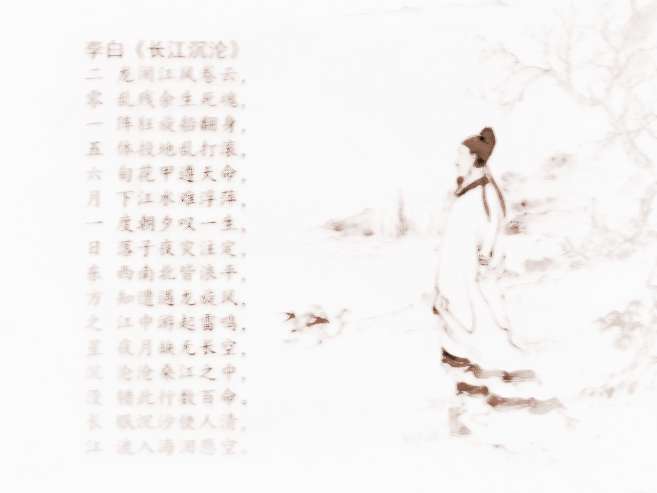 李白《长江沉沦》
二 龙闹江风卷云,
零 乱残余生死魂,
一 阵狂船翻身,
五 体投地乱打滚,
六 旬花甲遵天命,
月 下江水难浮萍,
一 度朝夕叹一生,
日 落子夜灾注定,
东 西南北皆浪平,
方 知遭遇龙旋风,
之 江中游起雷鸣,
星 夜月缺无长空,
沉 沦沧桑江之中,
此行数百命。
长 眠沉沙使人清,
江 波入海空,